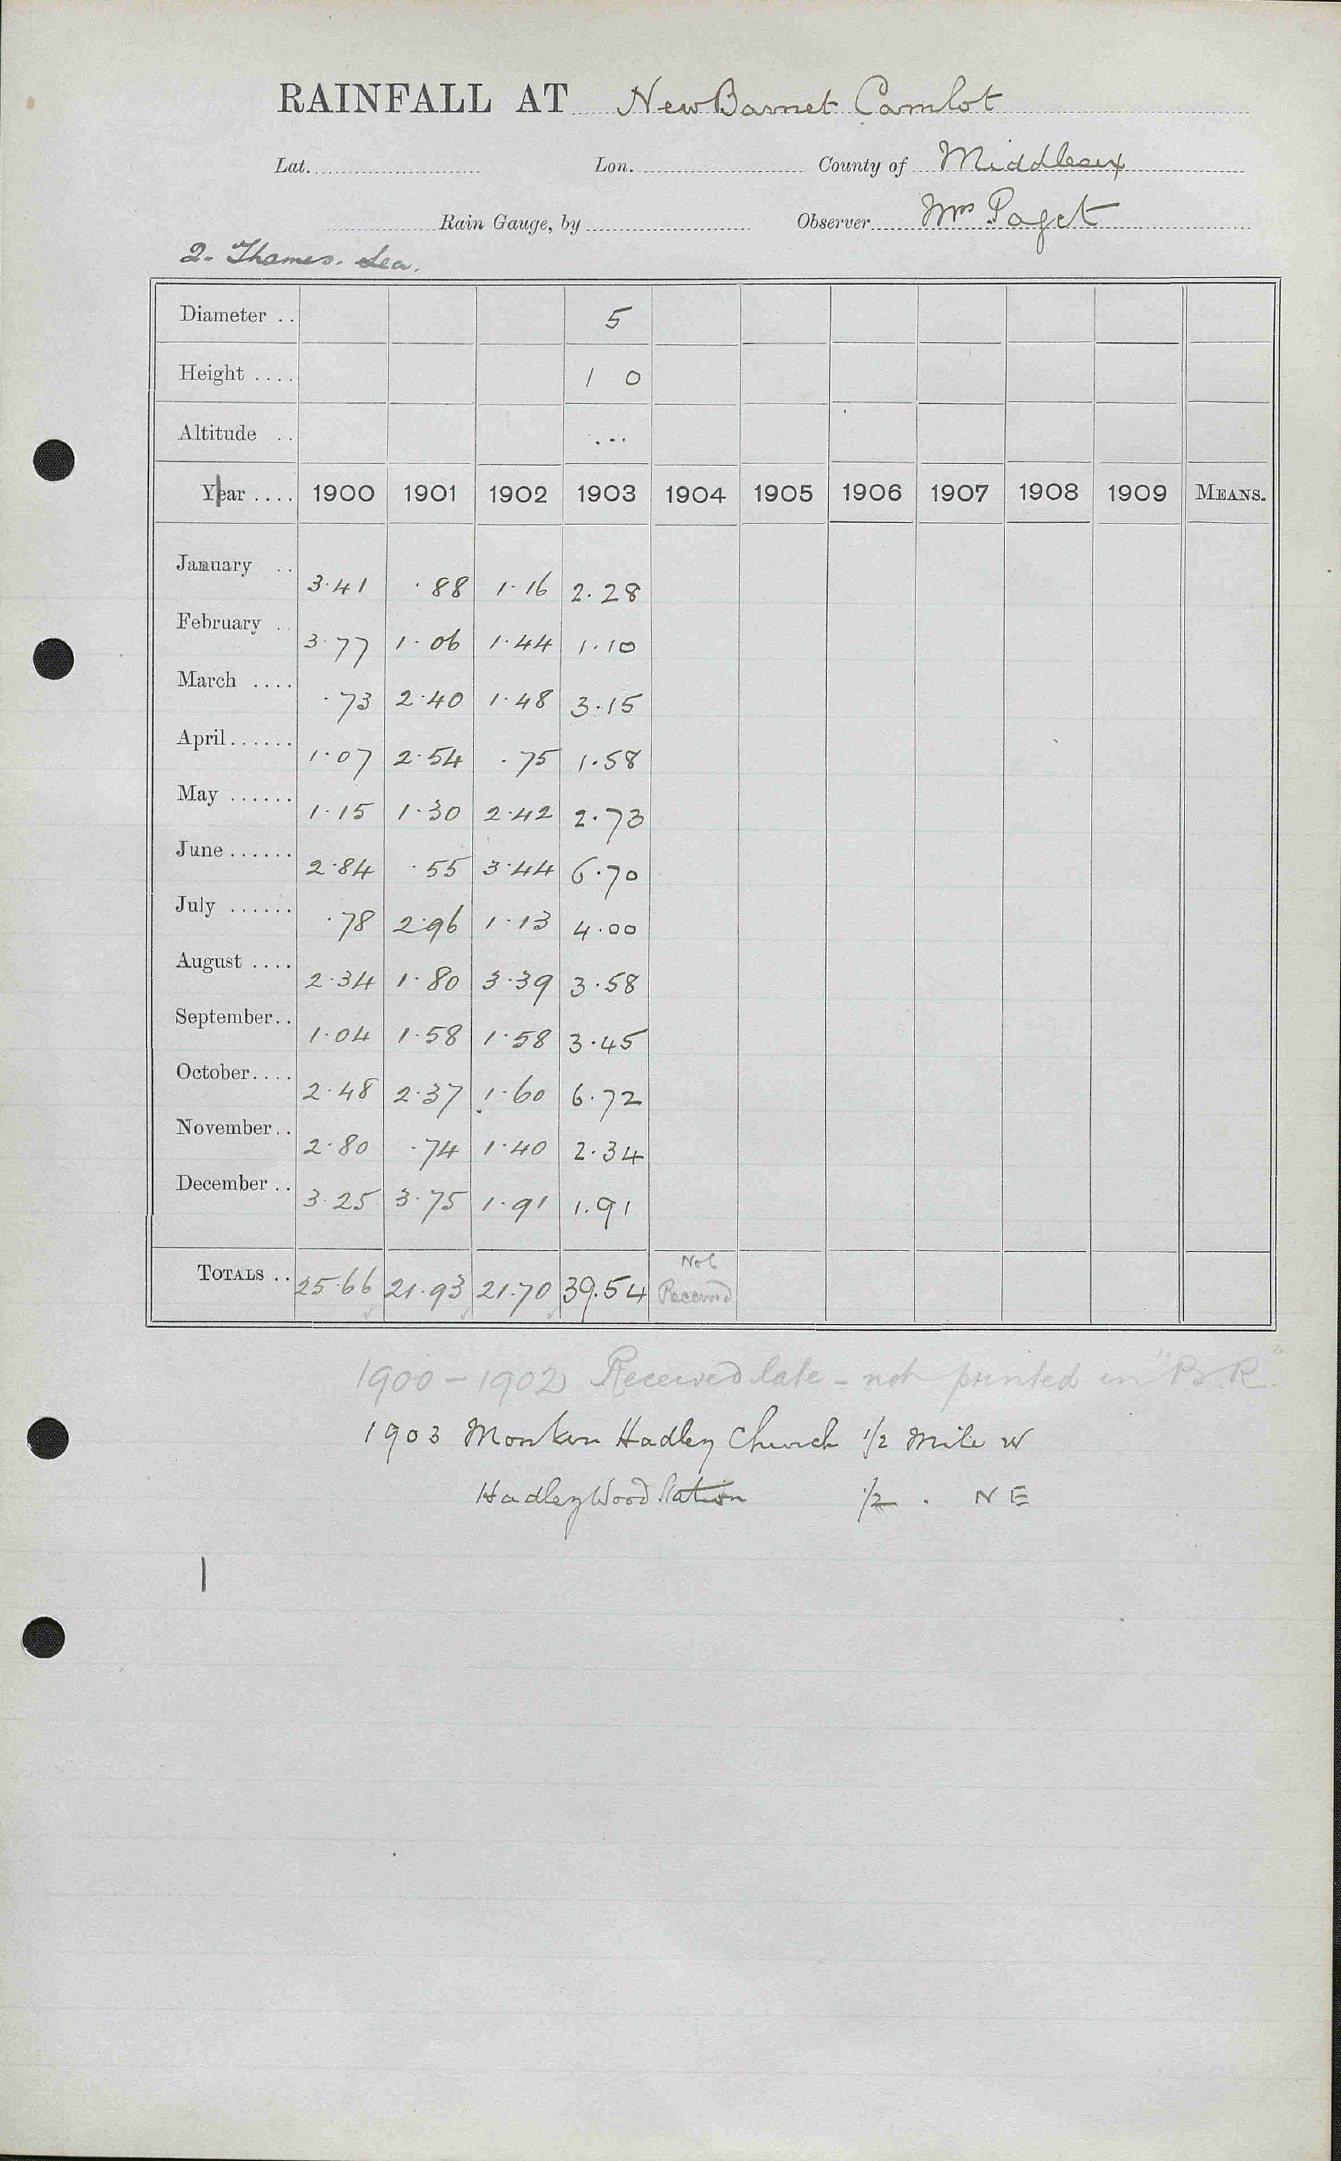 RAINFALL AT New Barnet Camlot
Lat. Lon. County of Middlesex
Rain Gauge, by Observer Mrs Paget
2. Thames. Lea.
Diameter .. 5
Height .... 1 0
Altitude .. ...
Year .... 1900 1901 1902 1903 1904 1905 1906 1907 1908 1909 MEANS.
January .. 3.41 .88 1.16 2.28
February .. 3.77 1.06 1.44 1.10
March .... .73 2.40 1.48 3.15
April...... 1.07 2.54 .75 1.58
May ...... 1.15 1.30 2.42 2.73
June...... 2.84 .55 3.44 6.70
July ...... .78 2.96 1.13 4.00
August .... 2.34 1.80 3.39 3.58
September.. 1.04 1.58 1.58 3.45
October.... 2.48 2.37 1.60 6.72
November.. 2.80 .74 1.40 2.34
December .. 3.25 3.75 1.91 1.91
TOTALS .. 25.66 21.93 21.70 39.54 Not Received
1900 - 1902 Received late - not printed in "B.R."
1903 Monken Hadley Church 1/2 Mile W
Hadley Wood Station 1/2 . NE